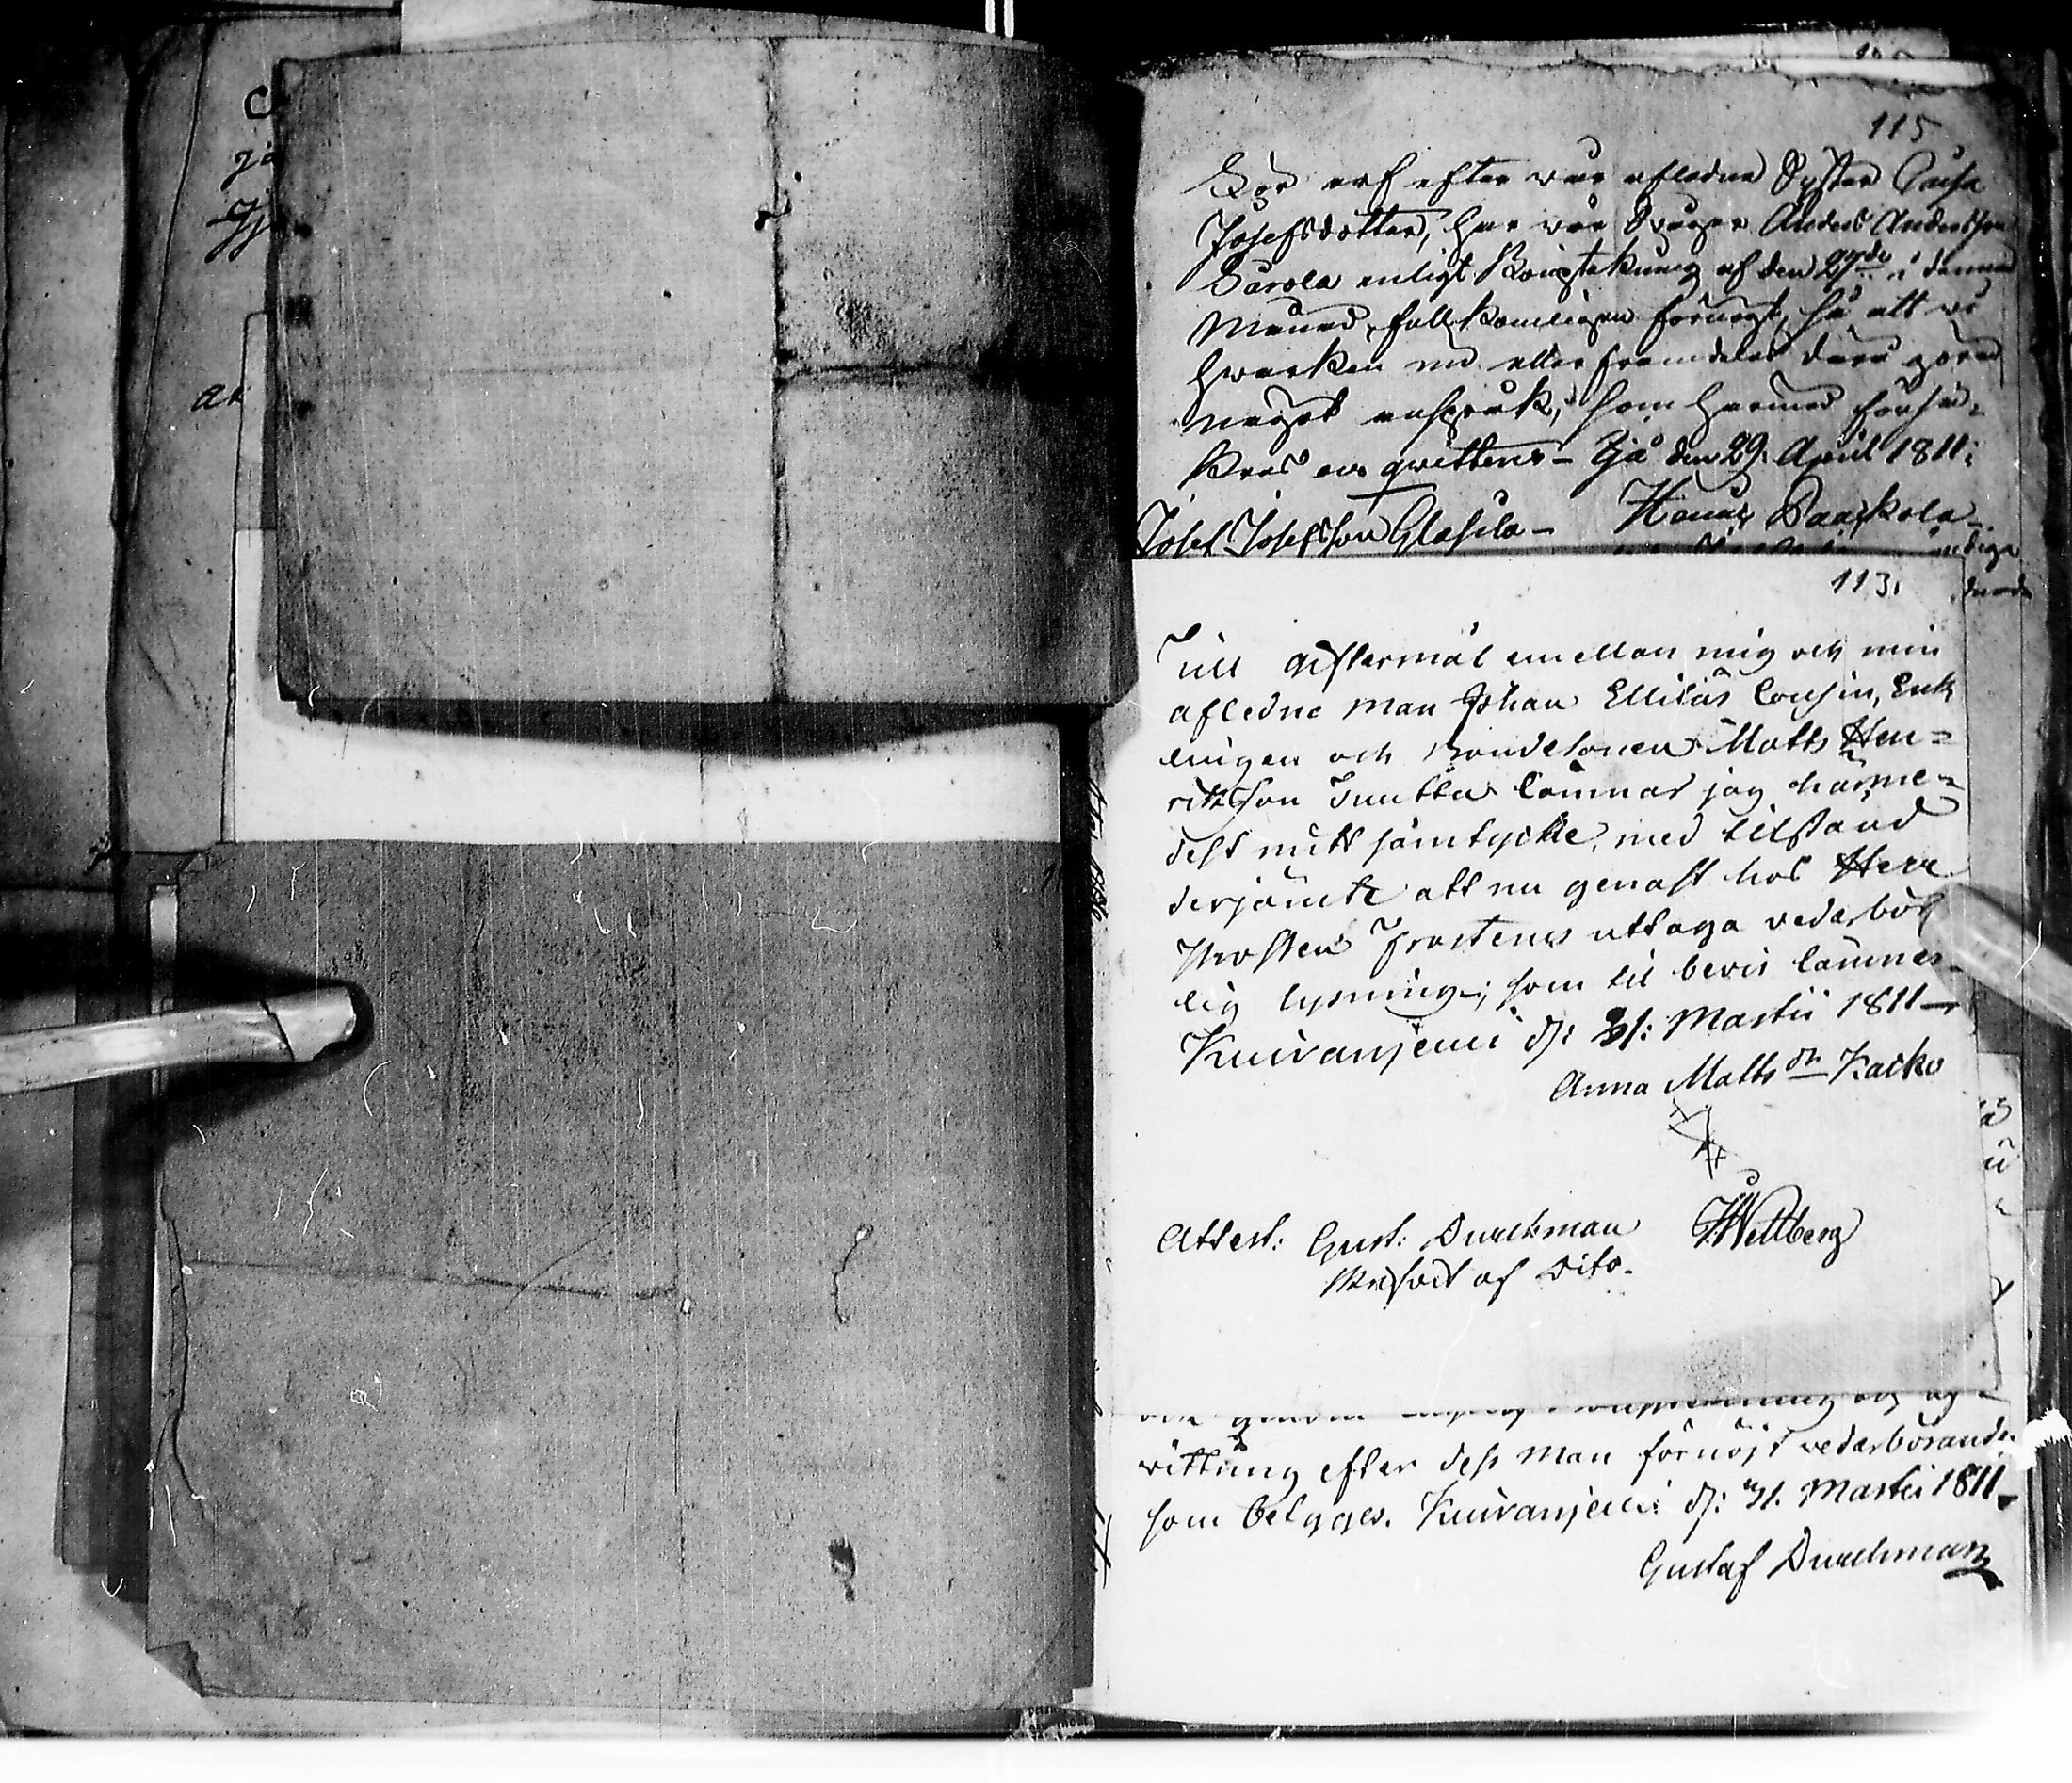 115
För arf efter vår afledna Syster Caisa
Josefsdotter, har vår Svåger Anders Andersson
Sarola enligt Bouptekning af den 27de i denna
Månad, fullkomligen förnögt, så att vi
hwarken nu eller framdeles därå göra
något anspråk, som härmed försäk-
kras och qvitteras – Ijå den 29. April 1811:
Josef Josefsson Glasila – Paaskola –
113.
Till Giftermål emellan mig och min
afledne man Johan Elliläs Cousin, Enk
lingen och Bondesonen Matts Hen=
riksson Juutka lämnar jag härme=
dest mitt samtycke, med tilstånd
derjämte att nu genast hos Herr
Prosten Frosterus uttaga vederbör
lig lysning; som til bevis lämnes
Kuivanjemi d: 31: Martii 1811 –
Anna Matts dr Kaako
Attest: Gust: Durchman
Wellberg
skrifvit af Dito.
vittring efter dess man förnöjt vederbörande
som betygges. Kuivanjemi d: 31. Martii 1811.
Gustaf Durchman